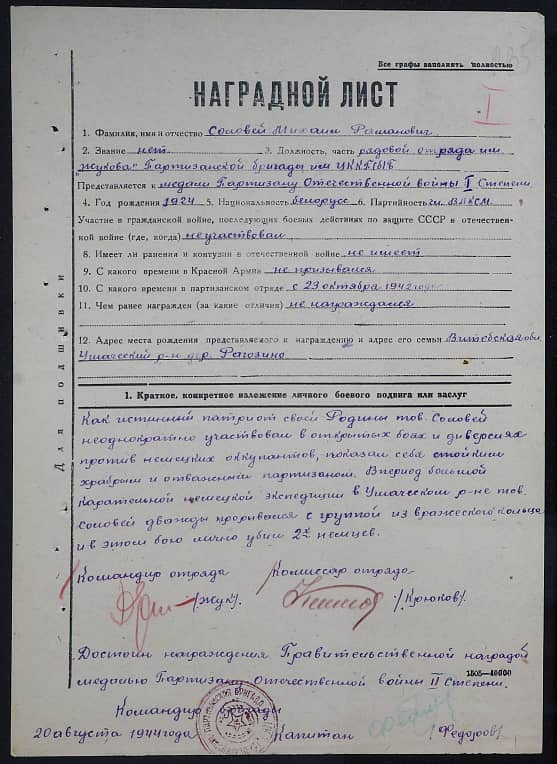 Все графы заполнять полностью
НАГРАДНОЙ ЛИСТ
I
1. Фамилия, имя и отчество Соловей Михаил Романович.
2. Звание нет. 3. Должность, часть рядовой отряда им.
"Жукова" Партизанской бригады им ЦККП(б)Б
Представляется к медали Партизану Отечественной войны I Степени
4. Год рождения 1924 5. Национальность белорус 6. Партийность чл. ВЛКСМ.
Участие в гражданской войне, последующих боевых действиях по защите СССР и отечествен-
ной войне (где, когда) не участвовал
8. Имеет ли ранения и контузии в отечественной войне не имеет
9. С какого времени в Красной Армии не призывался
10. С какого времени в партизанском отряде с 23 октября 1942 года
11. Чем ранее награжден (за какие отличия) не награждался
12. Адрес места рождения представляемого к награждению и адрес его семьи Витебская обл.
Ушачский р-н дер. Рагозино
Для подшивки
1. Краткое, конкретное изложение личного боевого подвига или заслуг
Как истинный патриот своей Родины тов. Соловей
неоднократно участвовал в открытых боях и диверсиях
против немецких оккупантов, показал себя стойким
храбрым и отважным партизаном. В период большой
карательной немецкой экспедиции в Ушачском р-не тов.
Соловей дважды прорывался с группой из вражеского кольца
и в этом бою лично убил 2х немцев.
Командир отряда Комиссар отряда
/Жук/. /Крюков/.
Достоин награждения Правительственной наградой
1505—40000
медалью Партизану Отечественной войны II Степени.
Командир бригады
20 августа 1944 года Капитан /Федоров/